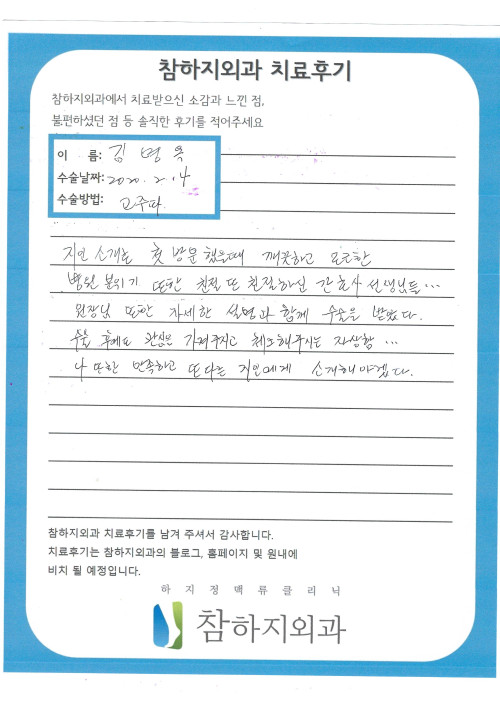 참하지외과 치료후기
참하지외과에서 치료받으신 소감과 느낀 점,
불편하셨던 점 등 솔직한 후기를 적어주세요
이 름: 김명옥
수술날짜: 2020. 2. 14
수술방법: 고주파
지인 소개로 첫 방문했을때 깨끗하고 포근한
병원 분위기 또한 친절 또 친절하신 간호사 선생님들…
원장님 또한 자세한 설명과 함께 수술을 받았다.
수술 후에도 관심을 가져주시고 체크해주시는 자상함…
나 또한 만족하고 또다른 지인에게 소개해야겠다.
참하지외과 치료후기를 남겨 주셔서 감사합니다.
치료후기는 참하지외과의 블로그, 홈페이지 및 원내에
비치 될 예정입니다.
하지정맥류클리닉
참하지외과